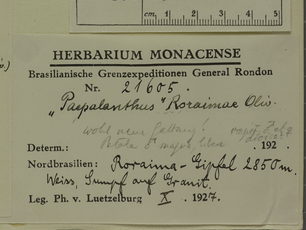 cm
1
2
HERBARIUM MONACENSE
Brasilianische Grenzexpeditionen General Rondon
Nr. 21605.
"Paepalanthus" Roraimae Oliv.
wohl neue Gattung!
Petala major
Determ.: . 192 .
Nordbrasilien: Roraima-Gipfel 2850 m.
Weiss, Sumpf auf Granit.
Leg. Ph. v. Luetzelburg X . 1927.